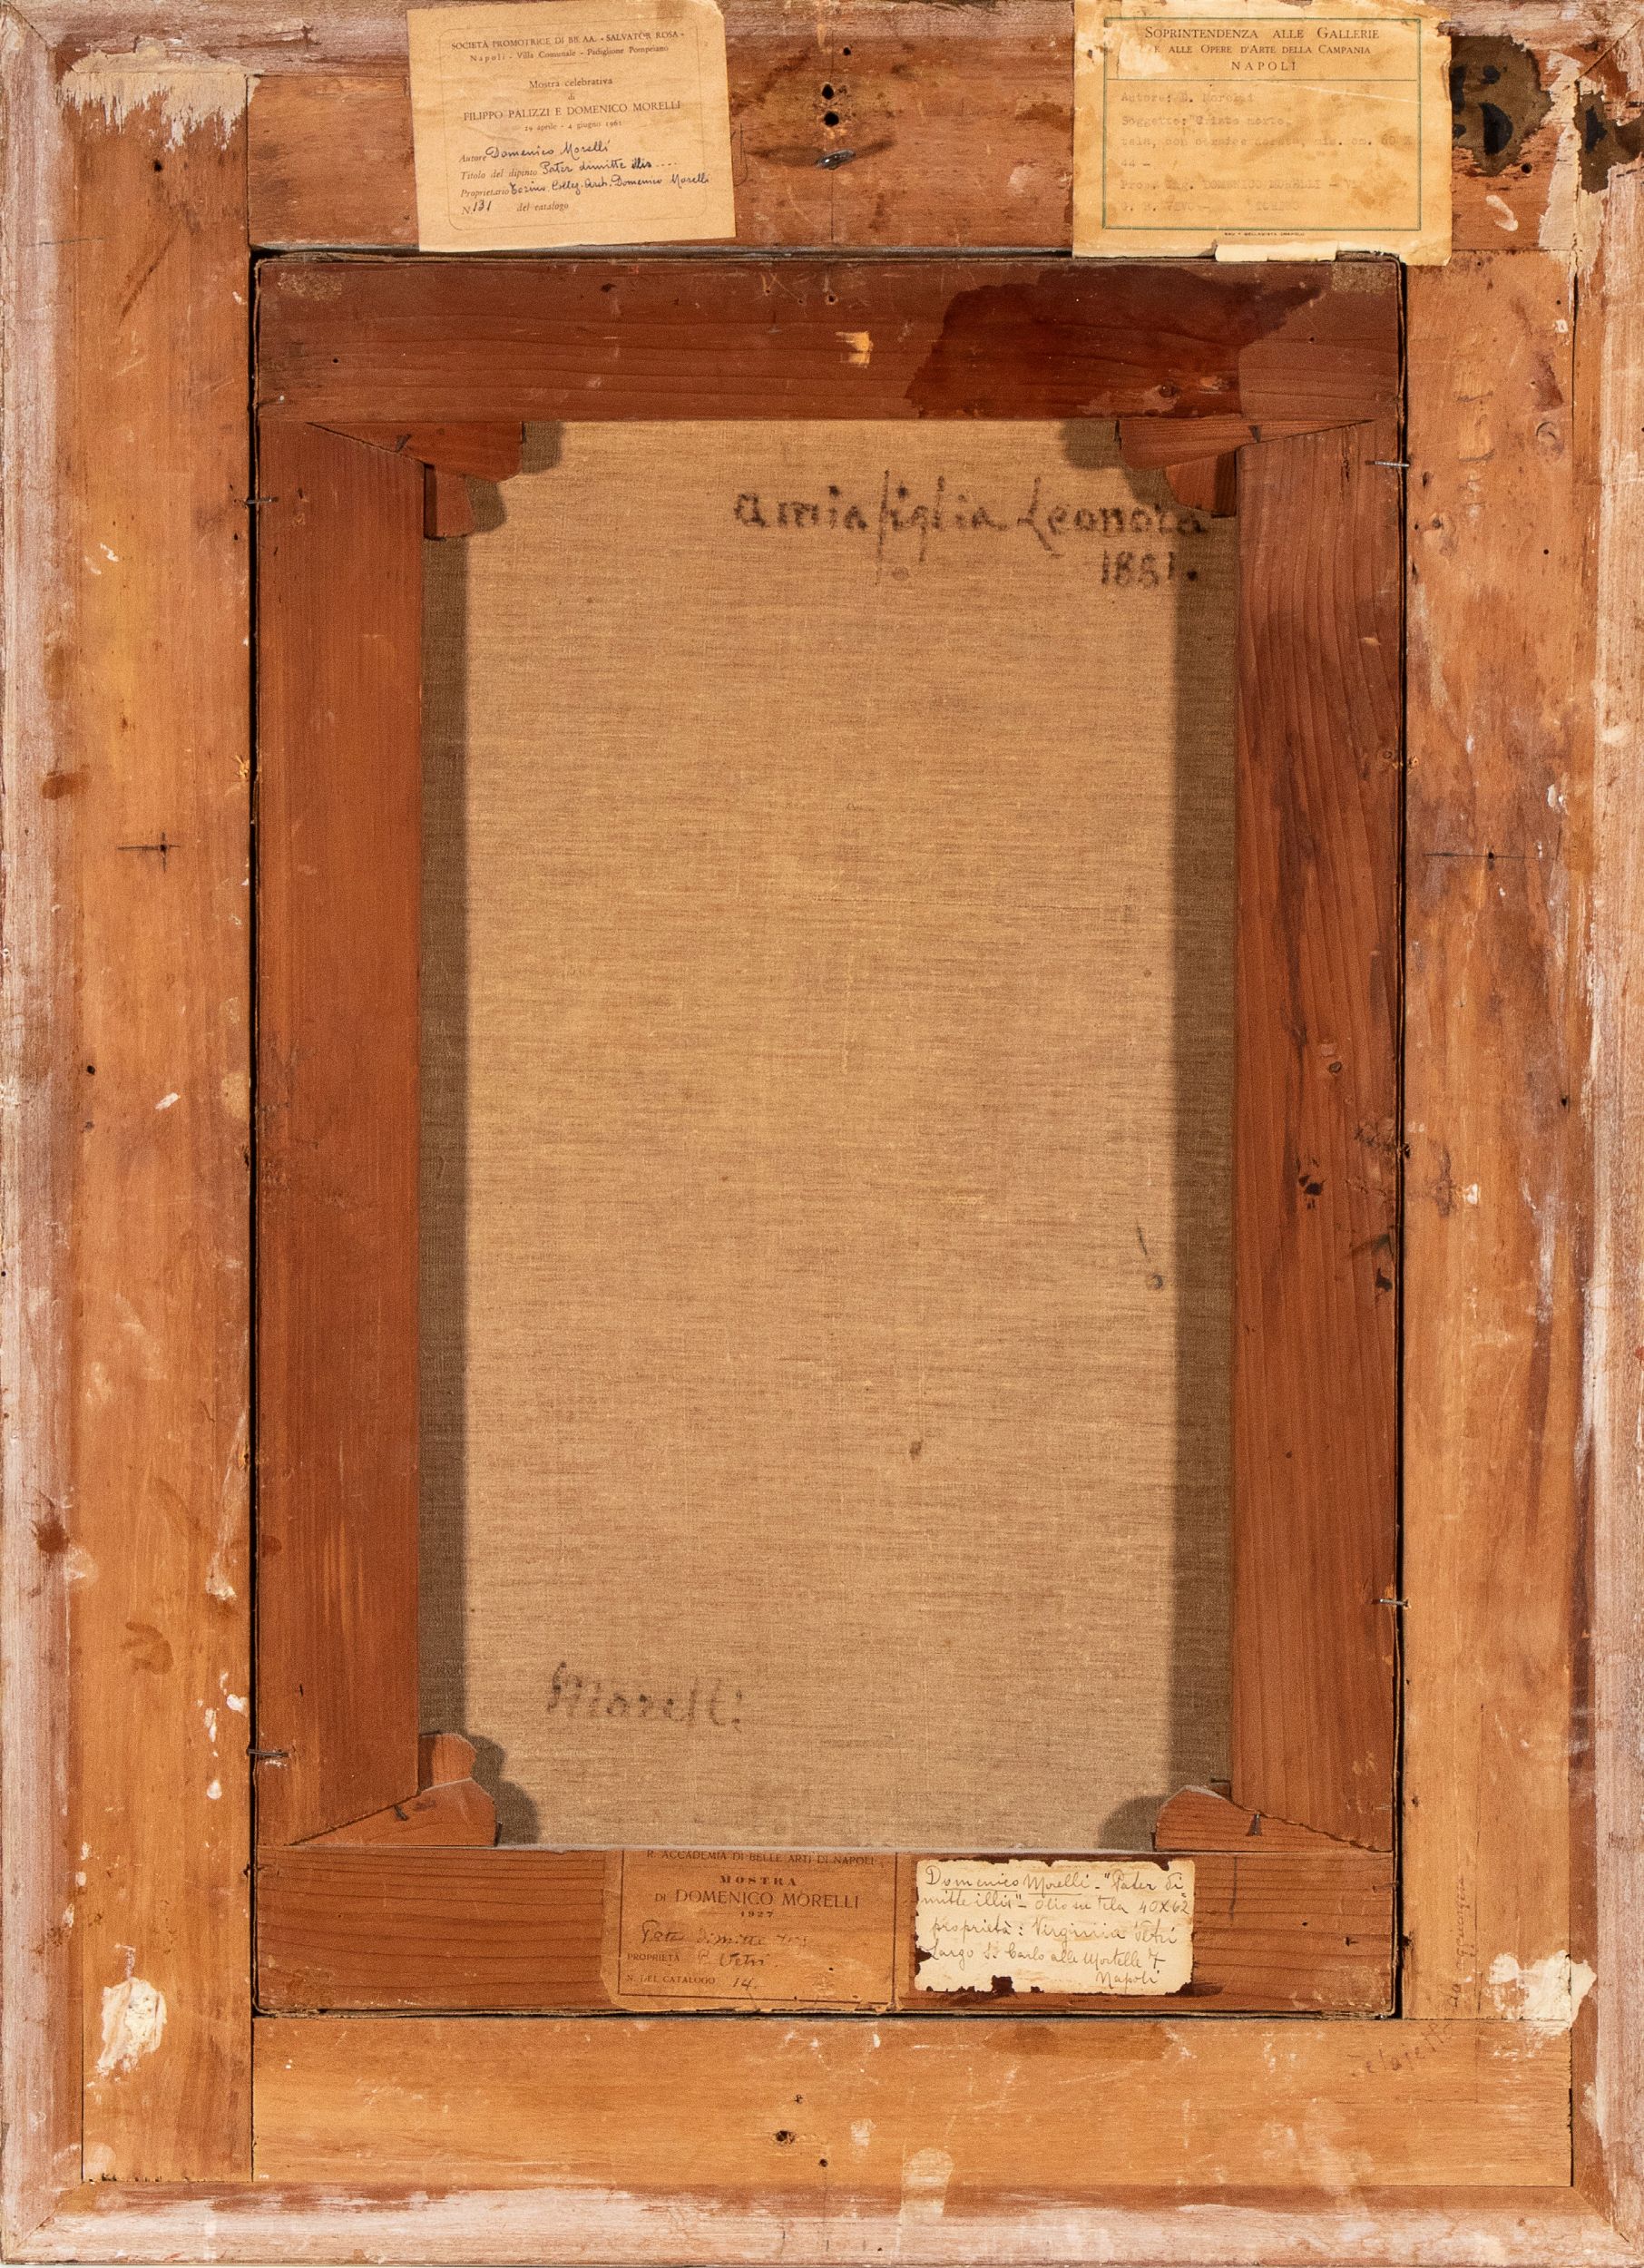 SOCIETÀ PROMOTRICE DI BB. AA. - SALVATOR ROSA -
Napoli - Villa Comunale - Padiglione Pompeiano
Mostra celebrativa
di
FILIPPO PALIZZI E DOMENICO MORELLI
29 aprile - 4 giugno 1961
Autore Domenico Morelli
Titolo del dipinto Pater dimitte illis ....
Proprietario Torino. Colleg. Arch. Domenico Morelli
N. 131 del catalogo
SOPRINTENDENZA ALLE GALLERIE
E ALLE OPERE D'ARTE DELLA CAMPANIA
NAPOLI
Autore: D. Morelli
Soggetto: "Cristo morto,
tela, con cornice dorata, mis. cm. 65 x
44 -
Prop. Ing. DOMENICO MORELLI -
TORINO
a mia figlia Leonora
1881.
Morelli
R. ACCADEMIA DI BELLE ARTI DI NAPOLI
MOSTRA
DI DOMENICO MORELLI
1927
Pater dimitte
PROPRIETÀ Vetri
N. DEL CATALOGO 14
Domenico Morelli - "Pater di
mitte illis" - olio su tela 40x62
proprietà: Virginia Vetri
Largo S. Carlo alle Mortelle 7
Napoli